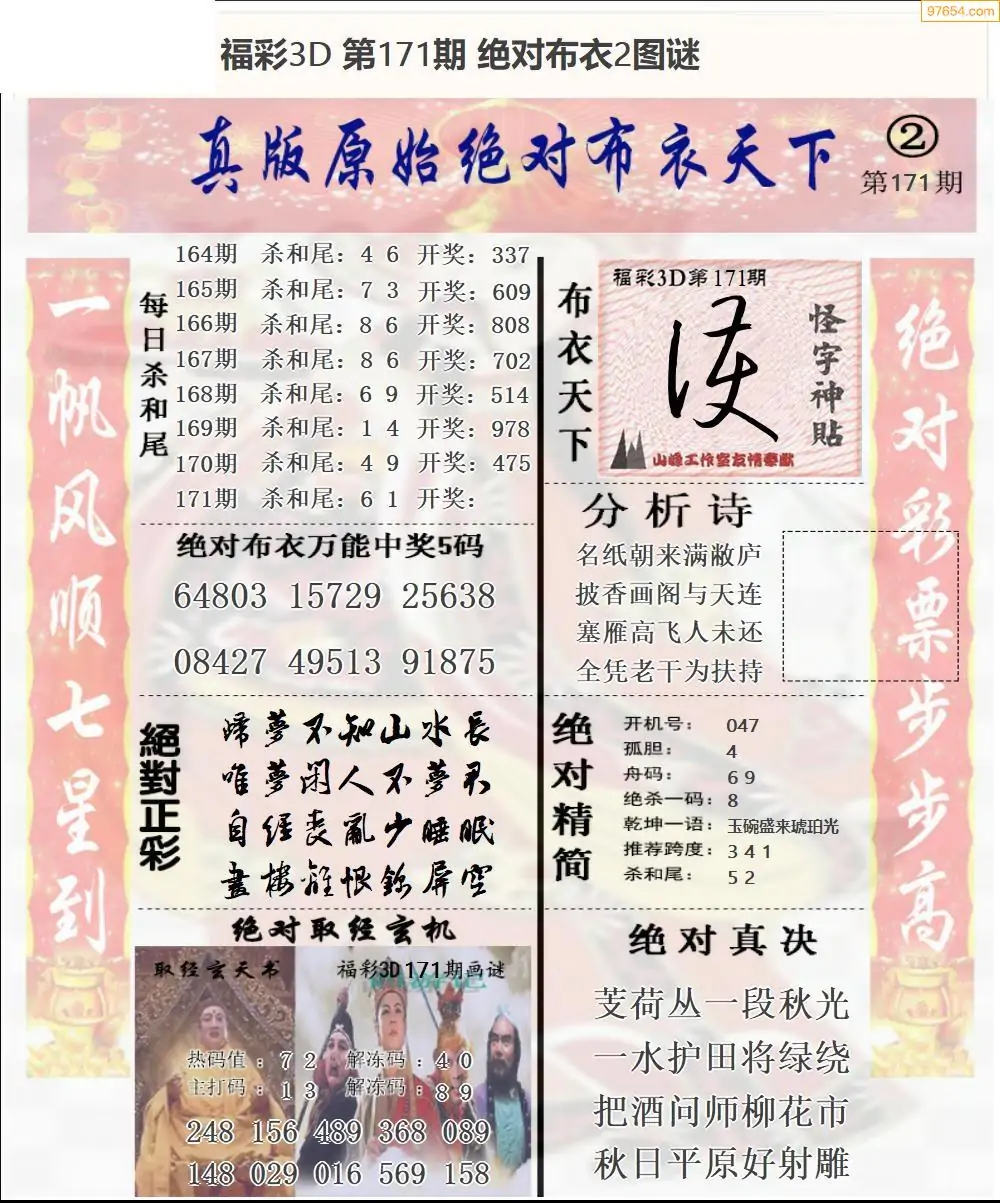 97654.com
福彩3D 第171期 绝对布衣2图谜
真版原始绝对布衣天下
②
第171期
一帆风顺七星到
每日杀和尾
164期 杀和尾：4 6 开奖：337
165期 杀和尾：7 3 开奖：609
166期 杀和尾：8 6 开奖：808
167期 杀和尾：8 6 开奖：702
168期 杀和尾：6 9 开奖：514
169期 杀和尾：1 4 开奖：978
170期 杀和尾：4 9 开奖：475
171期 杀和尾：6 1 开奖：
绝对布衣万能中奖5码
64803 15729 25638
08427 49513 91875
絕對正彩
归夢不知山水長
唯夢闲人不夢君
自经丧亂少睡眠
畫楼離恨錦屏空
绝对取经玄机
取经玄天书
福彩3D171期画谜
热码值：7 2 解冻码：4 0
主打码：1 3 解冻码：8 9
248 156 489 368 089
148 029 016 569 158
布衣天下
福彩3D第171期
怪字神貼
山峰工作室友情奉献
分析诗
名纸朝来满敝庐
披香画阁与天连
塞雁高飞人未还
全凭老干为扶持
绝对精简
开机号： 047
孤胆： 4
舟码： 6 9
绝杀一码：8
乾坤一语：玉碗盛来琥珀光
推荐跨度：3 4 1
杀和尾： 5 2
绝对真决
芰荷丛一段秋光
一水护田将绿绕
把酒问师柳花市
秋日平原好射雕
绝对彩票步步高